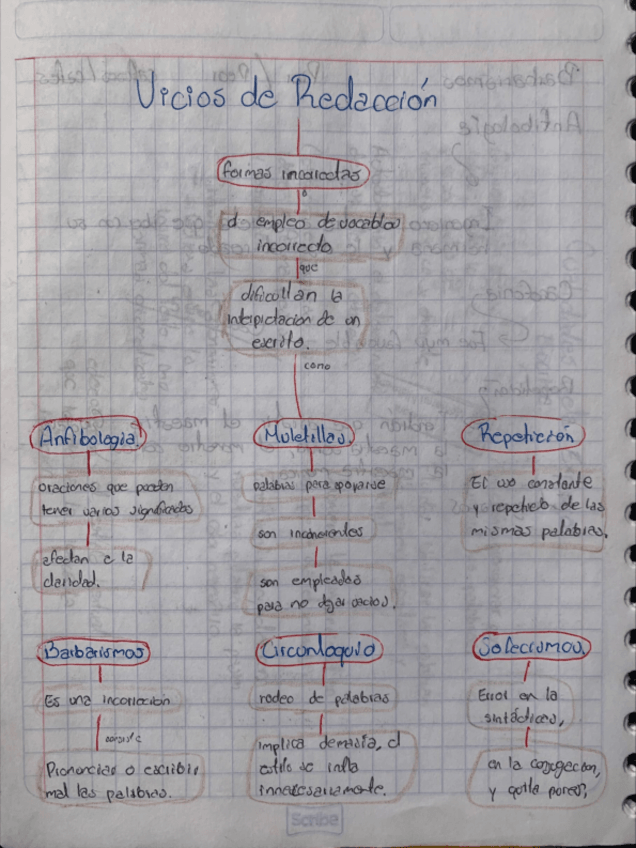 Vicios de Redacción
formas incorrectas
o
el empleo de vocablos
incorrecto
que
dificultan la
interpretación de un
escrito.
como
Anfibología
oraciones que pueden
tener varios significados
afectan a la
claridad.
Muletillas
palabras para apoyarse
son incoherentes
son empleados
para no dejar vacios.
Repetición
El uso constante
y repetido de las
mismas palabras.
Barbarismos
Es una incorrección
consiste
Pronunciar o escribir
mal las palabras.
Circunloquio
rodeo de palabras
implica demasía, el
estilo se infla
innecesariamente.
Solecismos
Error en la
sintácticos,
en la
y
Scribe